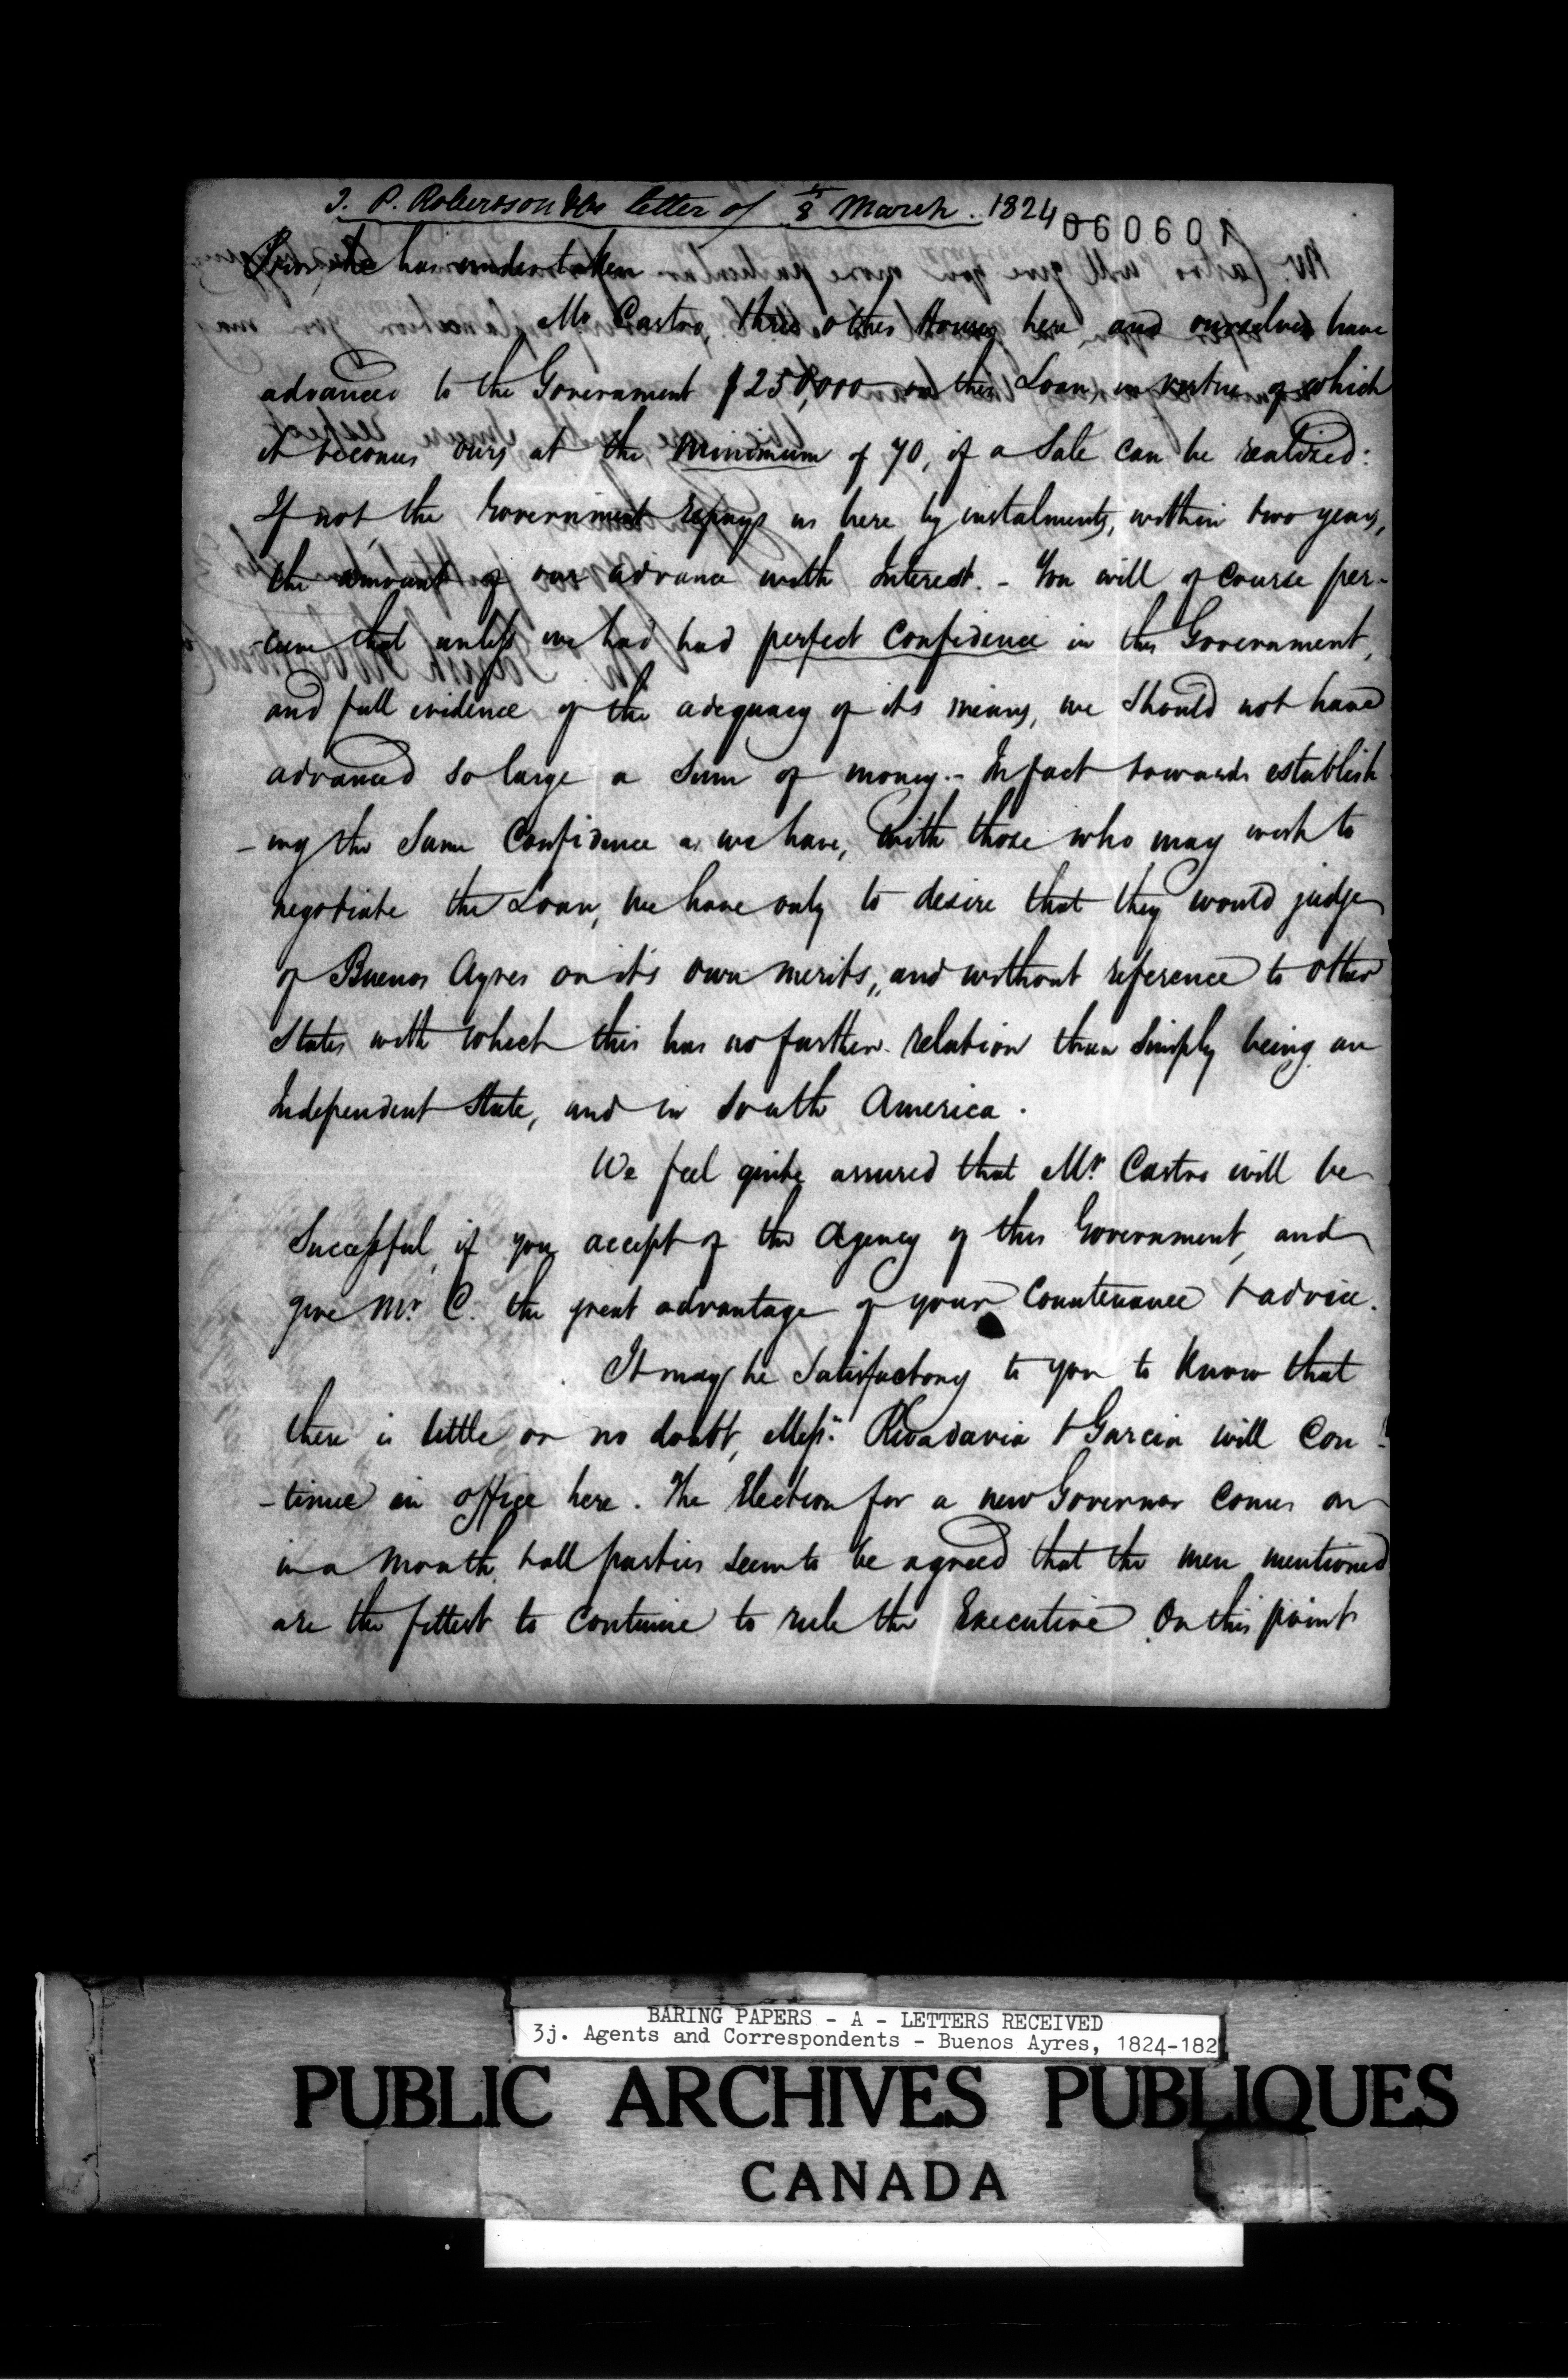 J. P. Robertson & Co letter of 8 March. 1824
060601
he has undertaken
Mr. Castro, three other Houses here, and ourselves have
advanced to the Government $250,000 on this Loan, in virtue of which
it becomes ours at the minimum of 70, if a Sale can be realized:
If not, the Government repays us here by instalments, within two years,
the amount of our advance with Interest. - You will of course per-
-ceive that unless we had had perfect Confidence in this Government,
and full evidence of the adequacy of its means, we should not have
advanced so large a Sum of money. - In fact towards establish
-ing the Same Confidence as we have, with those who may wish to
negotiate the Loan, we have only to desire that they would judge
of Buenos Ayres on it's own merits, and without reference to other
States with which this has no further relation than Simply being an
Independent State, and in South America.
We feel quite assured that Mr. Castro will be
Successful, if you accept of the Agency of this Government, and
give Mr. C. the great advantage of your Countenance & advice.
It may be Satisfactory to you to Know that
there is little or no doubt, Messrs. Rivadavia & Garcia will Con-
-tinue in office here. The Election for a new Governor Comes on
in a Month, & all parties seem to be agreed that the men mentioned
are the fittest to Continue to rule the Executive. On this point
BARING PAPERS - A - LETTERS RECEIVED
3j. Agents and Correspondents - Buenos Ayres, 1824-182
PUBLIC ARCHIVES PUBLIQUES
CANADA